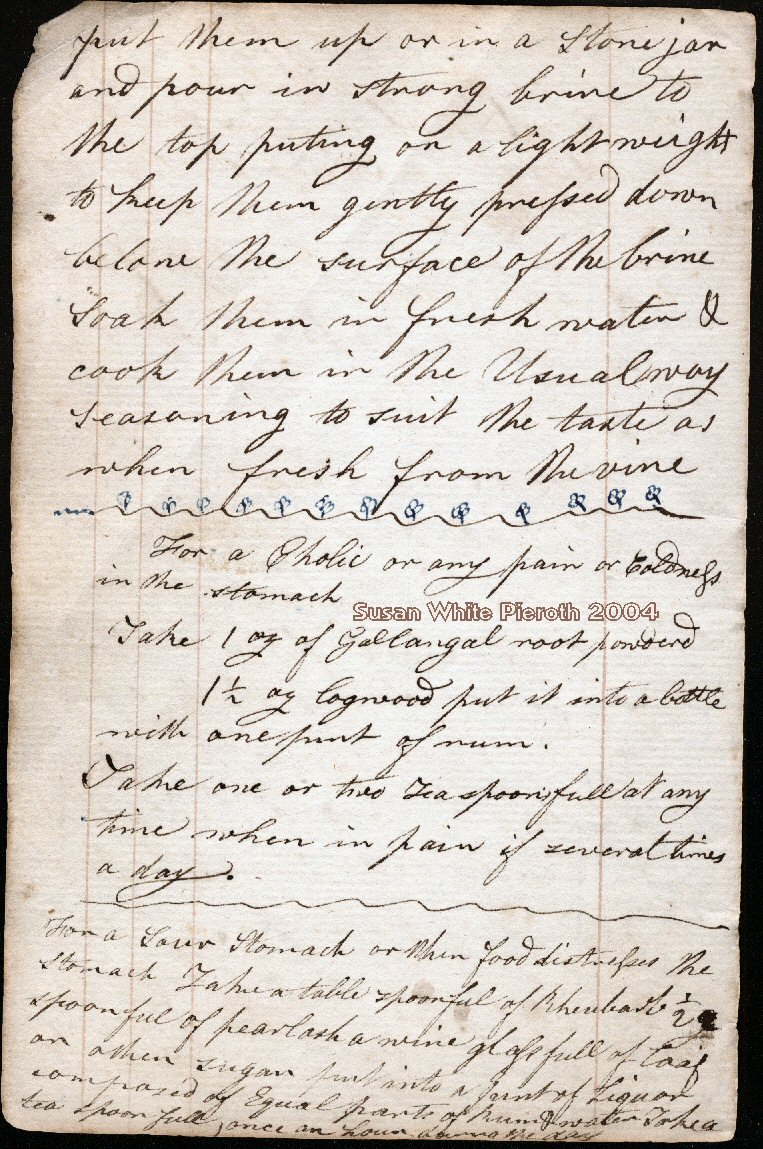 put them up or in a Stone jar
and pour in strong brine to
the top puting on a light weight
to keep them gently pressed down
belone the surface of the brine
Soak them in fresh water &
cook them in the Usual way
seasoning to suit the taste as
when fresh from the vine
For a Cholic or any pain or Coldness
in the stomach
Susan White Pieroth 2004
Take 1 oz of Gallangal root powderd
1½ oz Logwood put it into a bottle
with one pint of rum.
Take one or two tea spoonsfull at any
time when in pain if several times
a day.
For a Sour Stomach or when food distresses the
Stomach Take a table spoonful of Rheubarb ½
spoonful of pearlash a wine glass full of loaf
or other sugar put into a pint of Liquor
composed of Equal parts of Rum & water Take a
tea spoon full, once an hour during the day